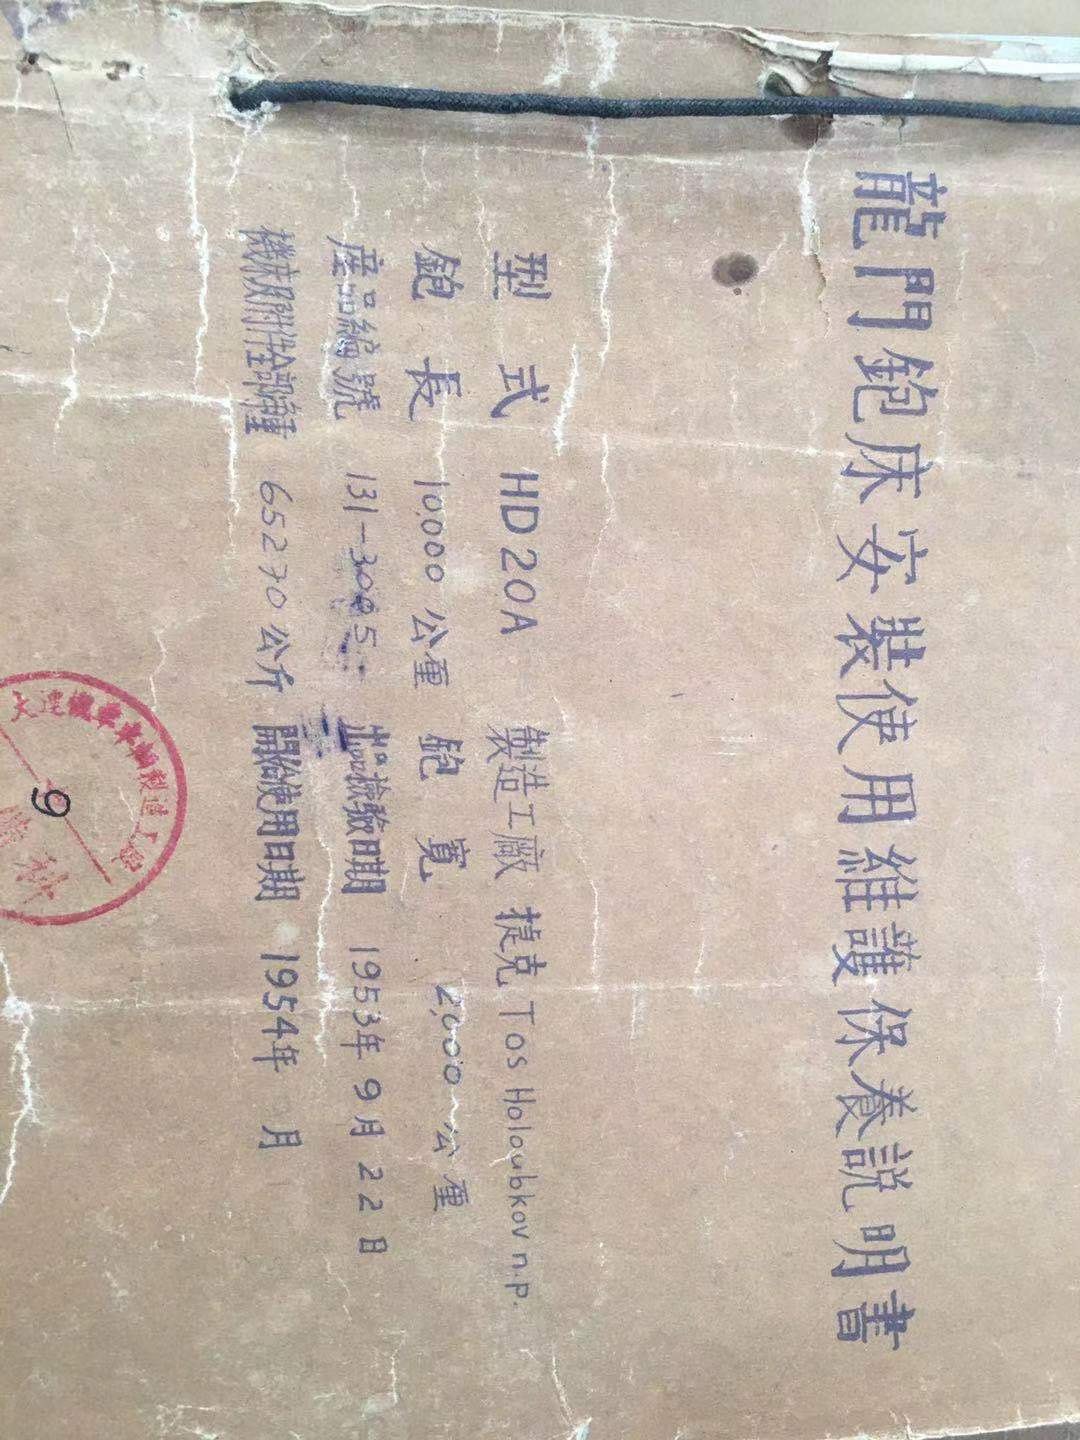 龍門鉋床安裝使用維護保養説明書
型式 HD20A 製造工廠 捷克 Tos Holoubkov n.p.
鉋長 10,000公厘 鉋寬 2,000公厘
産品編號 131-3005 出品檢驗日期 1953年9月22日
機床附件全部重 65270公斤 開始使用日期 1954年 月
大連機車車輛製造工廠
9
科